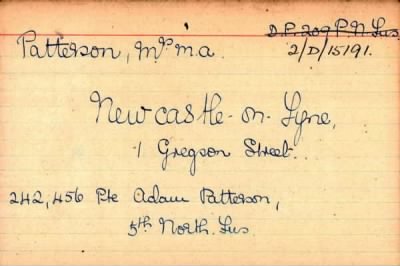 Patterson, Mrs M.a.
D.P. 209 P.N.Fus.
2/D/15191.
Newcastle-on-Tyne,
1 Gregson Street.
242,456 Pte Adam Patterson,
5th North. Fus.